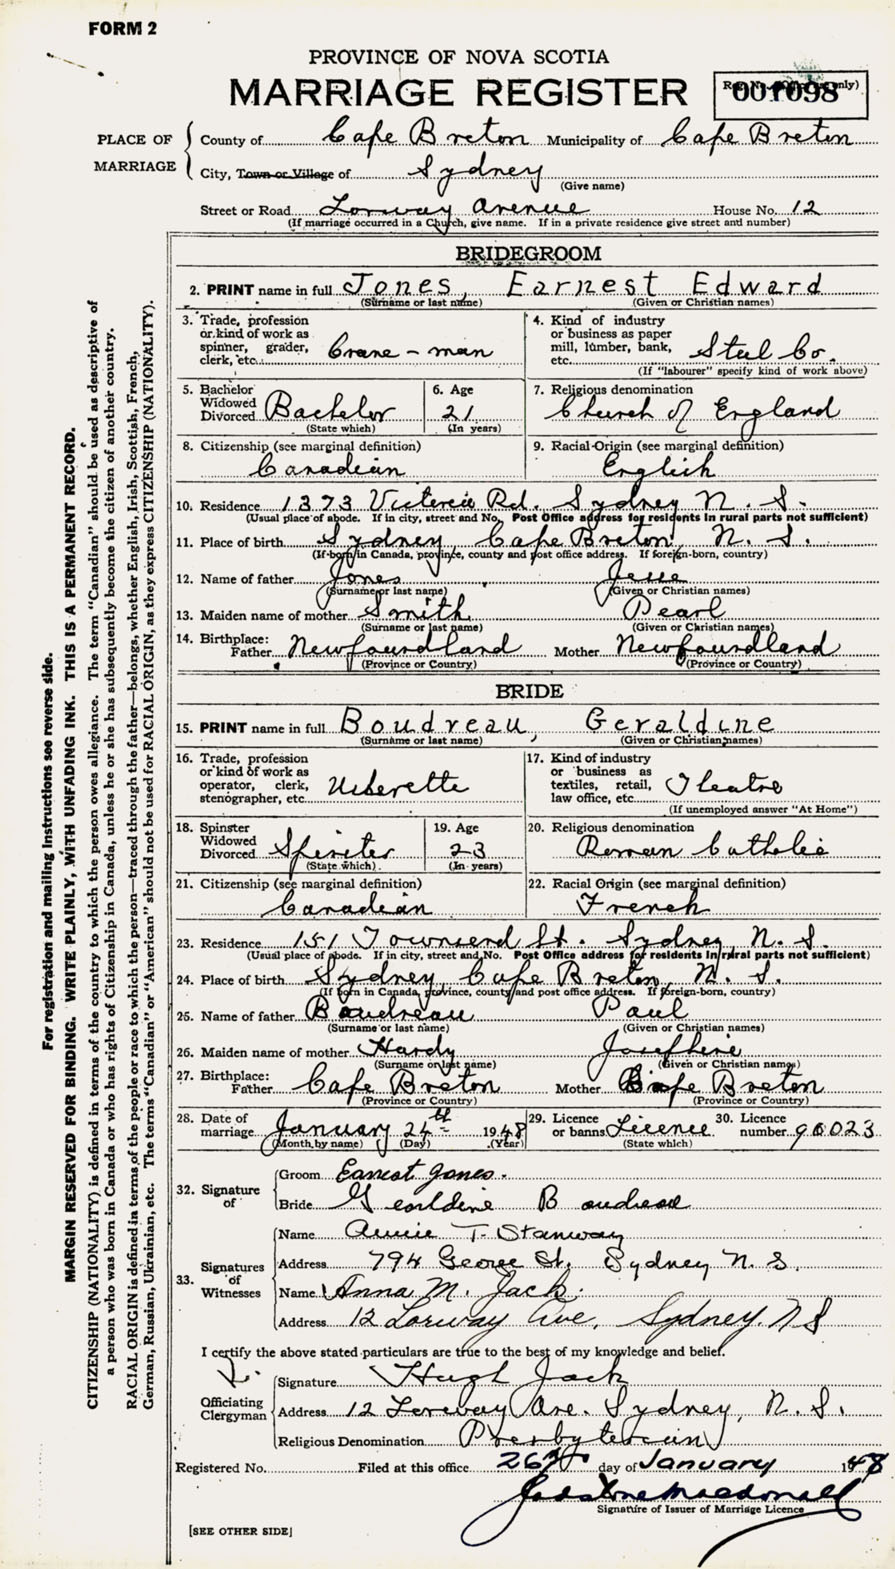 FORM 2
PROVINCE OF NOVA SCOTIA
MARRIAGE REGISTER
001098
PLACE OF MARRIAGE
County of Cape Breton Municipality of Cape Breton
City, Town or Village of Sydney
(Give name)
Street or Road Lorway Avenue House No. 12
(If marriage occurred in a Church, give name. If in a private residence give street and number)
BRIDEGROOM
2. PRINT name in full Jones, Earnest Edward
(Surname or last name) (Given or Christian names)
3. Trade, profession or kind of work as spinner, grader, clerk, etc. Crane-man
4. Kind of industry or business as paper mill, lumber, bank, etc. Steel Co.
(If "labourer" specify kind of work above)
5. Bachelor Widowed Divorced Bachelor
(State which)
6. Age 21
(In years)
7. Religious denomination Church of England
8. Citizenship (see marginal definition) Canadian
9. Racial Origin (see marginal definition) English
10. Residence 1373 Victoria Rd. Sydney N. S.
(Usual place of abode. If in city, street and No. Post Office address for residents in rural parts not sufficient)
11. Place of birth Sydney, Cape Breton, N. S.
(If born in Canada, province, county and post office address. If foreign-born, country)
12. Name of father Jones Jesse
(Surname or last name) (Given or Christian names)
13. Maiden name of mother Smith Pearl
(Surname or last name) (Given or Christian names)
14. Birthplace: Father Newfoundland Mother Newfoundland
(Province or Country) (Province or Country)
BRIDE
15. PRINT name in full Boudreau, Geraldine
(Surname or last name) (Given or Christian names)
16. Trade, profession or kind of work as operator, clerk, stenographer, etc. Usherette
17. Kind of industry or business as textiles, retail, law office, etc. Theatre
(If unemployed answer "At Home")
18. Spinster Widowed Divorced Spinster
(State which)
19. Age 23
(In years)
20. Religious denomination Roman Catholic
21. Citizenship (see marginal definition) Canadian
22. Racial Origin (see marginal definition) French
23. Residence 151 Townsend St. Sydney N. S.
(Usual place of abode. If in city, street and No. Post Office address for residents in rural parts not sufficient)
24. Place of birth Sydney, Cape Breton, N. S.
(If born in Canada, province, county and post office address. If foreign-born, country)
25. Name of father Boudreau Paul
(Surname or last name) (Given or Christian names)
26. Maiden name of mother Hardy Josephine
(Surname or last name) (Given or Christian names)
27. Birthplace: Father Cape Breton Mother Cape Breton
(Province or Country) (Province or Country)
28. Date of marriage January 24th 1948
(Month by name) (Day) (Year)
29. Licence or banns Licence
(State which)
30. Licence number 90023
32. Signature of
Groom Earnest Jones.
Bride Gearldine Boudreau
33. Signatures of Witnesses
Name Annie T. Stanway
Address 794 George St. Sydney N. S.
Name Anna M. Jack.
Address 12 Lorway Ave, Sydney. N S
I certify the above stated particulars are true to the best of my knowledge and belief.
Officiating Clergyman
Signature Hugh Jack
Address 12 Lorway Ave. Sydney, N. S.
Religious Denomination Presbyterian
Registered No. Filed at this office 26th day of January 1948
Macdonald
Signature of Issuer of Marriage Licence
[SEE OTHER SIDE]
For registration and mailing instructions see reverse side.
MARGIN RESERVED FOR BINDING. WRITE PLAINLY, WITH UNFADING INK. THIS IS A PERMANENT RECORD.
CITIZENSHIP (NATIONALITY) is defined in terms of the country to which the person owes allegiance. The term "Canadian" should be used as descriptive of
a person who was born in Canada or who has rights of Citizenship in Canada, unless he or she has subsequently become the citizen of another country.
RACIAL ORIGIN is defined in terms of the people or race to which the person—traced through the father—belongs, whether English, Irish, Scottish, French,
German, Russian, Ukrainian, etc. The terms "Canadian" or "American" should not be used for RACIAL ORIGIN, as they express CITIZENSHIP (NATIONALITY).